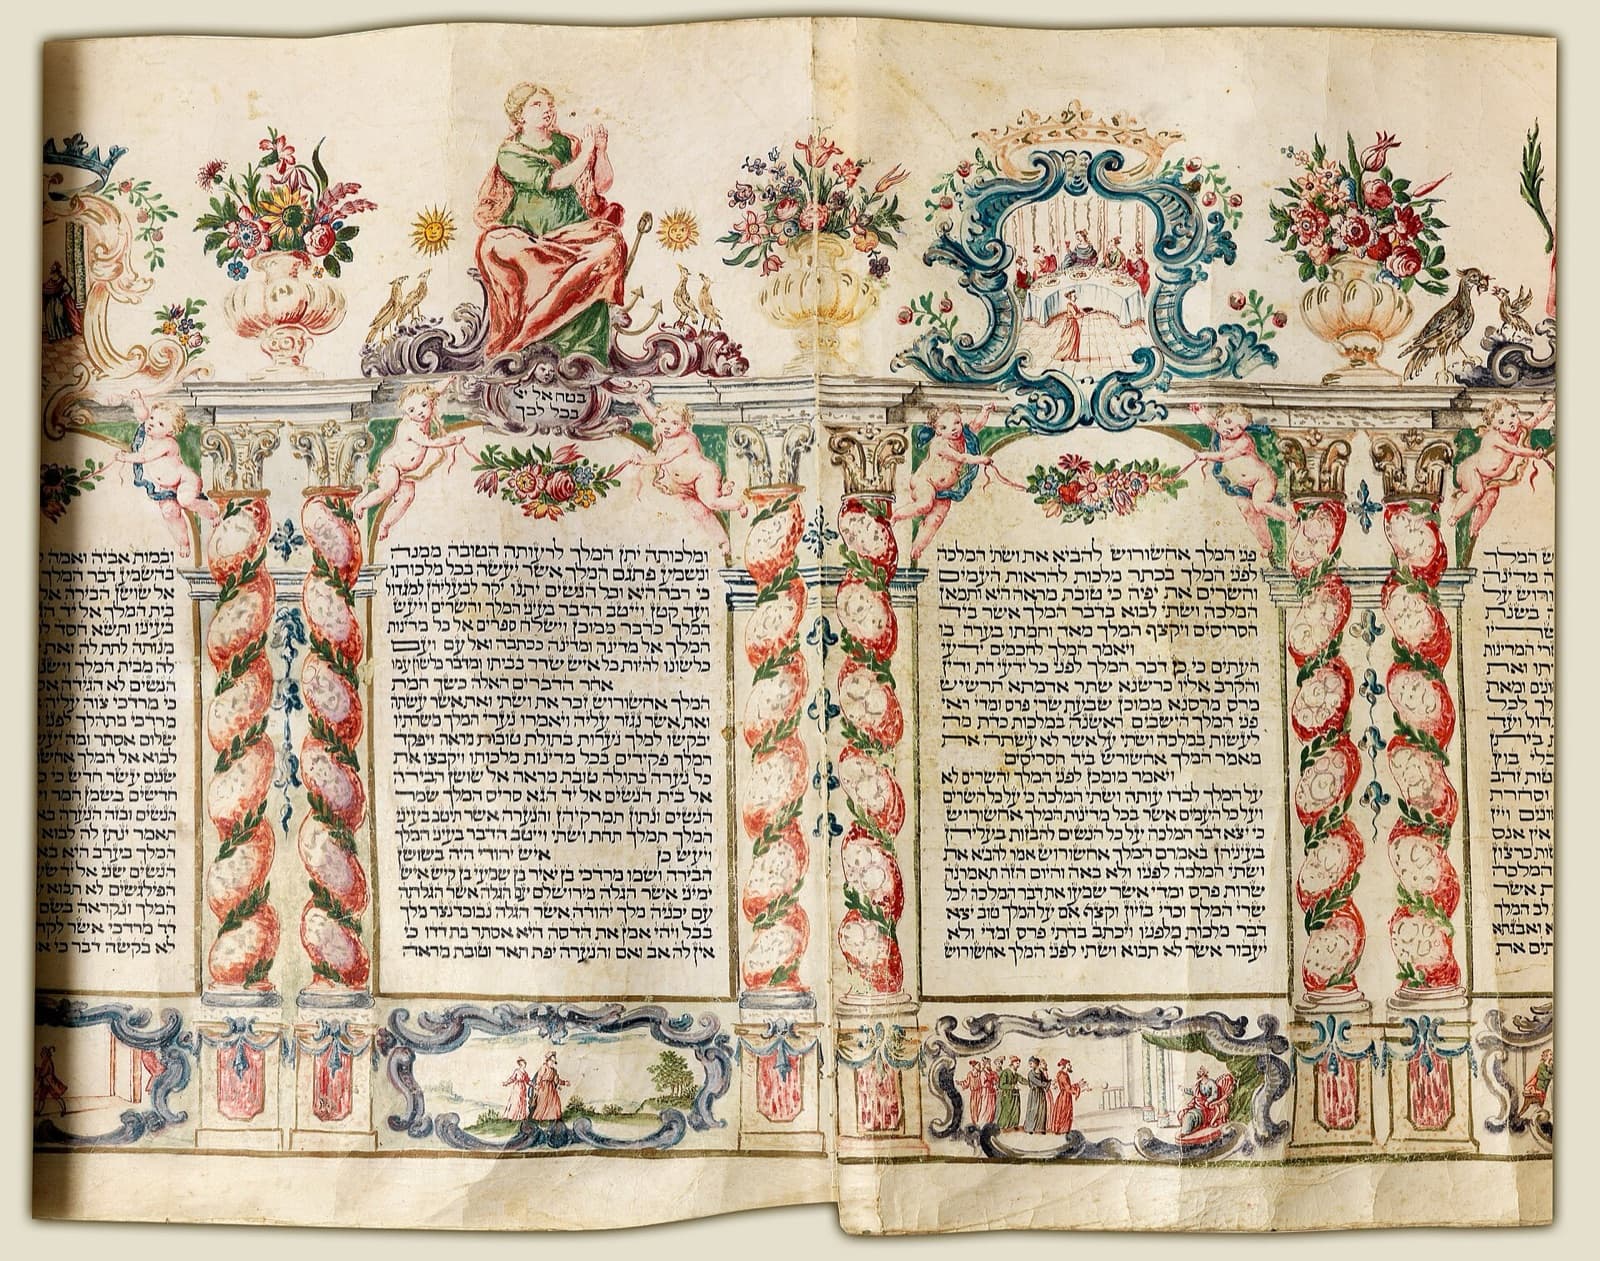 ש המלך
בטח אל יי
בכל לבך
פני המלך אחשורוש להביא את ושתי המלכה
לפני המלך בכתר מלכות להראות העמים
והשרים את יפיה כי טובת מראה היא ותמאן
המלכה ושתי לבוא בדבר המלך אשר ביד
הסריסים ויקצף המלך מאד וחמתו בערה בו
ויאמר המלך לחכמים ידעי
העתים כי כן דבר המלך לפני כל ידעי דת ודין
והקרב אליו כרשנא שתר אדמתא תרשיש
מרס מרסנא ממוכן שבעת שרי פרס ומדי ראי
פני המלך הישבים ראשנה במלכות כדת מה
לעשות במלכה ושתי על אשר לא עשתה את
מאמר המלך אחשורוש ביד הסריסים
ויאמר מומכן לפני המלך והשרים לא
על המלך לבדו עותה ושתי המלכה כי על כל השרים
ועל כל העמים אשר בכל מדינות המלך אחשורוש
כי יצא דבר המלכה על כל הנשים להבזות בעליהן
בעיניהן באמרם המלך אחשורוש אמר להביא את
ושתי המלכה לפניו ולא באה והיום הזה תאמרנה
שרות פרס ומדי אשר שמעו את דבר המלכה לכל
שרי המלך וכדי בזיון וקצף אם על המלך טוב יצא
דבר מלכות מלפניו ויכתב בדתי פרס ומדי ולא
יעבור אשר לא תבוא ושתי לפני המלך אחשורוש
ומלכותה יתן המלך לרעותה הטובה ממנה
ונשמע פתגם המלך אשר יעשה בכל מלכותו
כי רבה היא וכל הנשים יתנו יקר לבעליהן למגדול
ועד קטן וייטב הדבר בעיני המלך והשרים ויעש
המלך כדבר ממוכן וישלח ספרים אל כל מדינות
המלך אל מדינה ומדינה ככתבה ואל עם ועם
כלשונו להיות כל איש שרר בביתו ומדבר כלשון עמו
אחר הדברים האלה כשך חמת
המלך אחשורוש זכר את ושתי ואת אשר עשתה
ואת אשר נגזר עליה ויאמרו נערי המלך משרתיו
יבקשו למלך נערות בתולות טובות מראה ויפקד
המלך פקידים בכל מדינות מלכותו ויקבצו את
כל נערה בתולה טובת מראה אל שושן הבירה
אל בית הנשים אל יד הגא סריס המלך שמר
הנשים ונתון תמרקיהן והנערה אשר תיטב בעיני
המלך תמלך תחת ושתי וייטב הדבר בעיני המלך
ויעש כן איש יהודי היה בשושן
הבירה ושמו מרדכי בן יאיר בן שמעי בן קיש איש
ימיני אשר הגלה מירושלים עם הגלה אשר הגלתה
עם יכניה מלך יהודה אשר הגלה נבוכדנצר מלך
בבל ויהי אמן את הדסה היא אסתר בת דדו כי
אין לה אב ואם והנערה יפת תאר וטובת מראה
ובמות אביה ואמה
בהשמע דבר המלך
אל שושן הבירה אל
בית המלך אל יד ה
בעיניו ותשא חסד ל
מנותה לתת לה ואת
לה מבית המלך וישנ
הנשים לא הגידה אס
כי מרדכי צוה עליה א
מרדכי מתהלך לפני
שלום אסתר ומה יעש
לבוא אל המלך אחש
שנים עשר חדש כי כ
חדשים בשמן המר ו
הנשים ובזה הנערה בא
תאמר ינתן לה לבוא
המלך בערב היא בא
הנשים שני אל יד שע
הפילגשים לא תבוא
המלך ונקראה בשם
דד מרדכי אשר לקח
לא בקשה דבר כי א